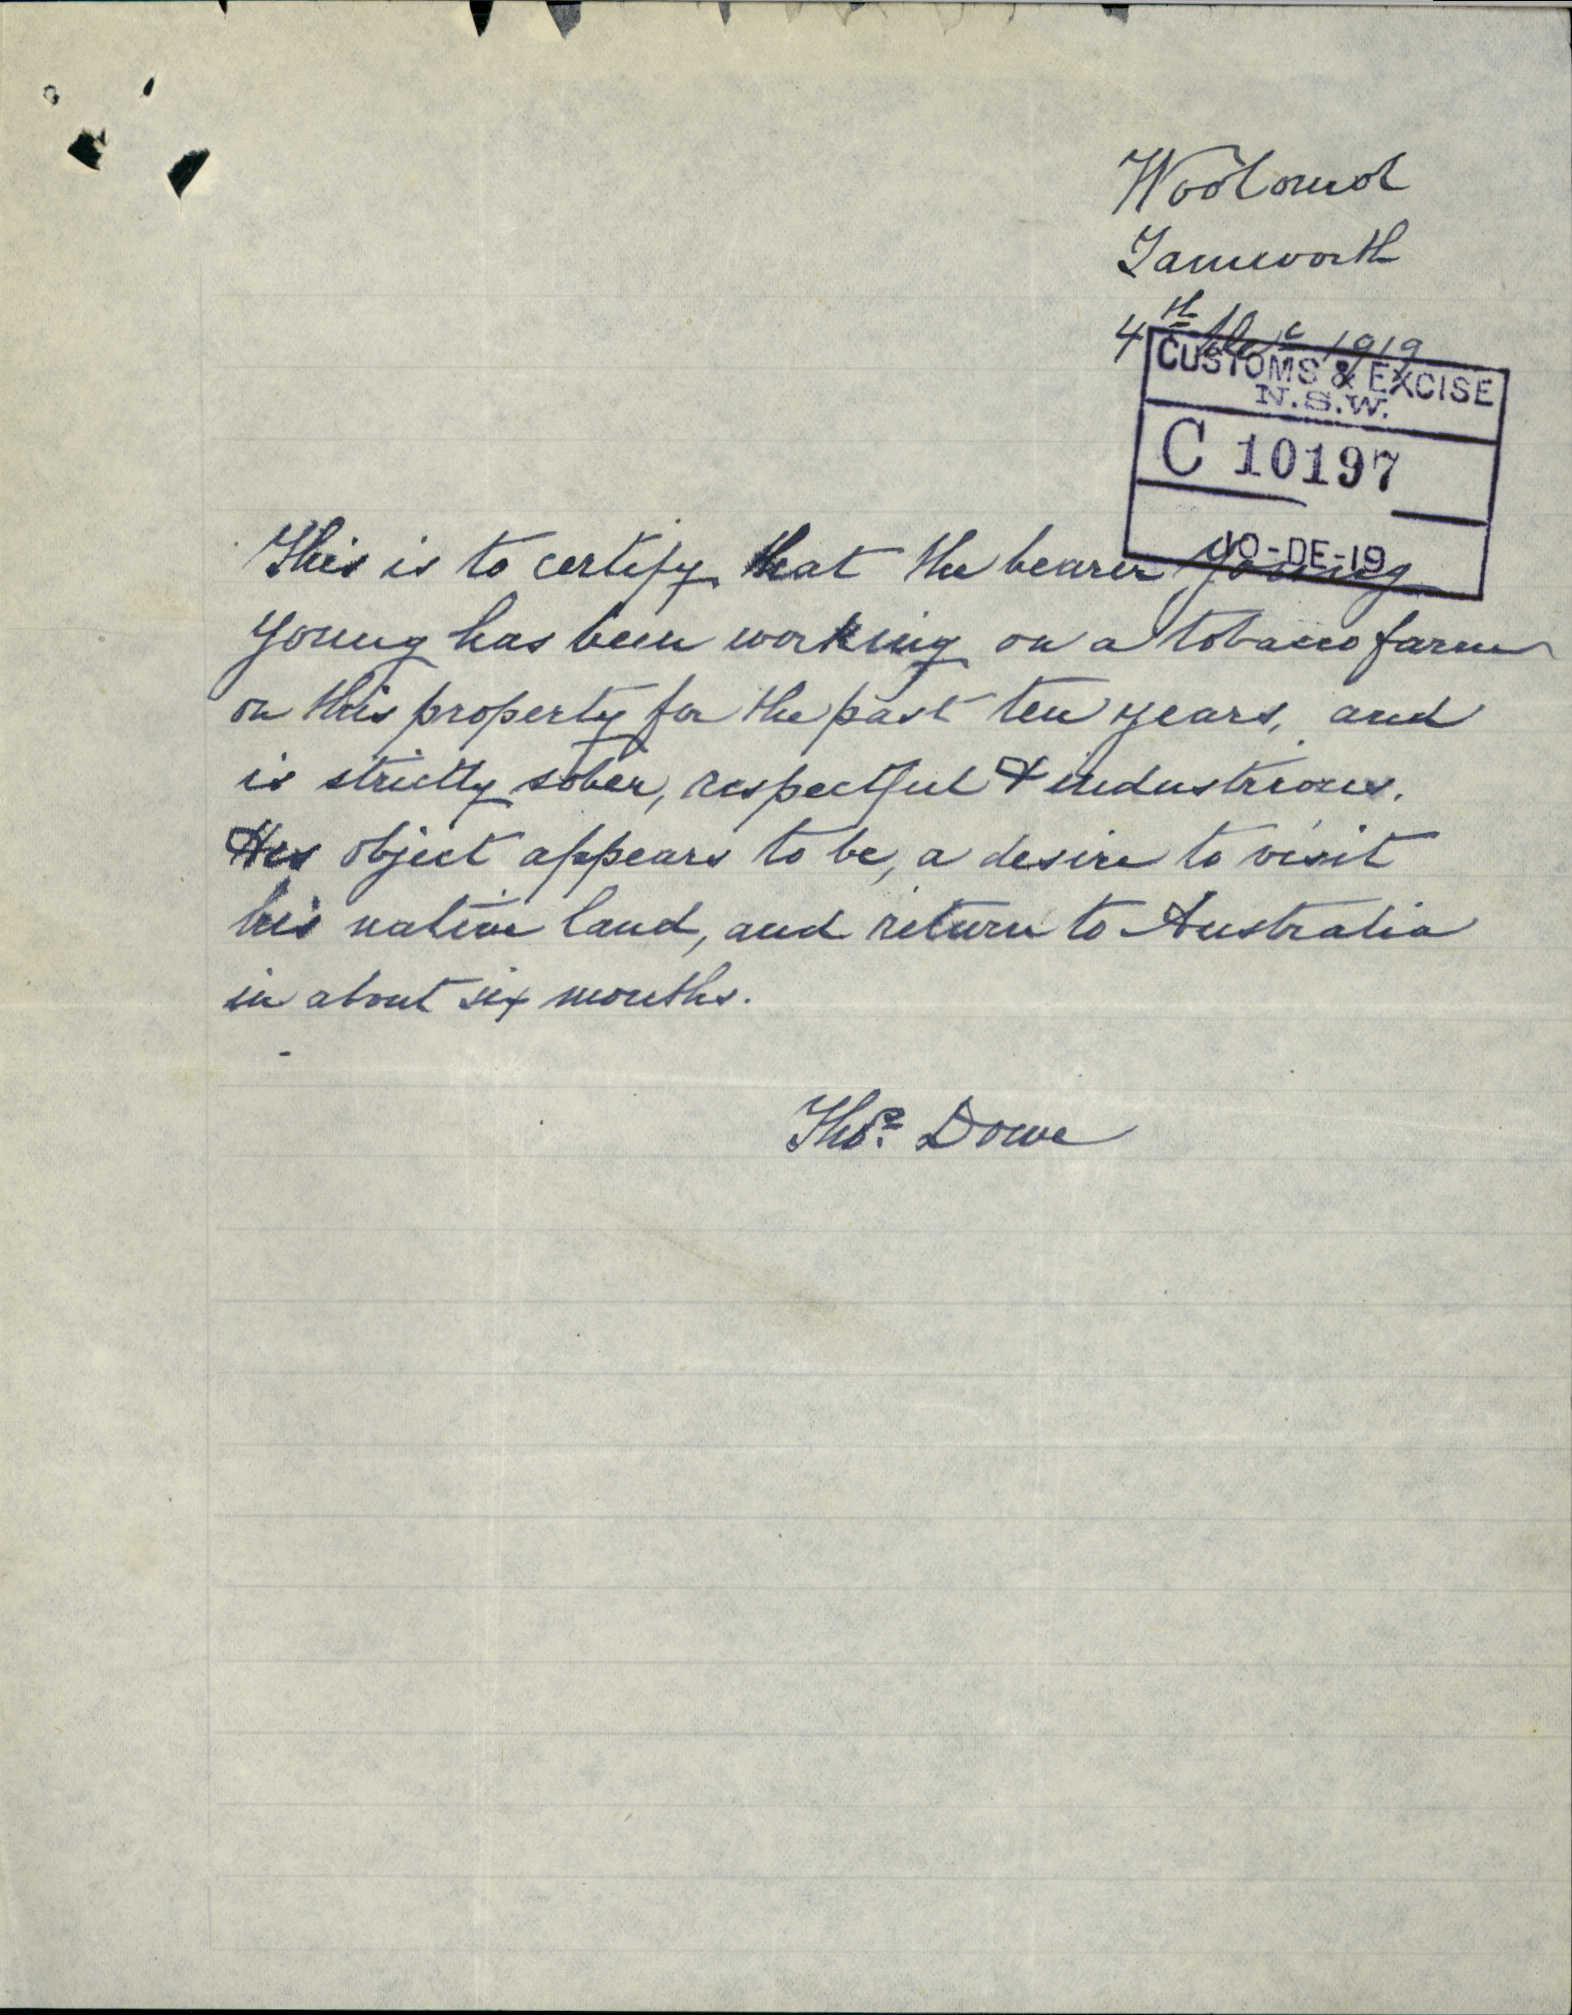 Woolomol
Tamworth
4th Dec 1919
CUSTOMS & EXCISE
N.S.W.
C 10197
10-DE-19
This is to certify that the bearer Young
Young has been working on a tobacco farm
on this property for the past ten years, and
is strictly sober, respectful & industrious.
His object appears to be, a desire to visit
his native land, and return to Australia
in about six months.
Thos. Dowe